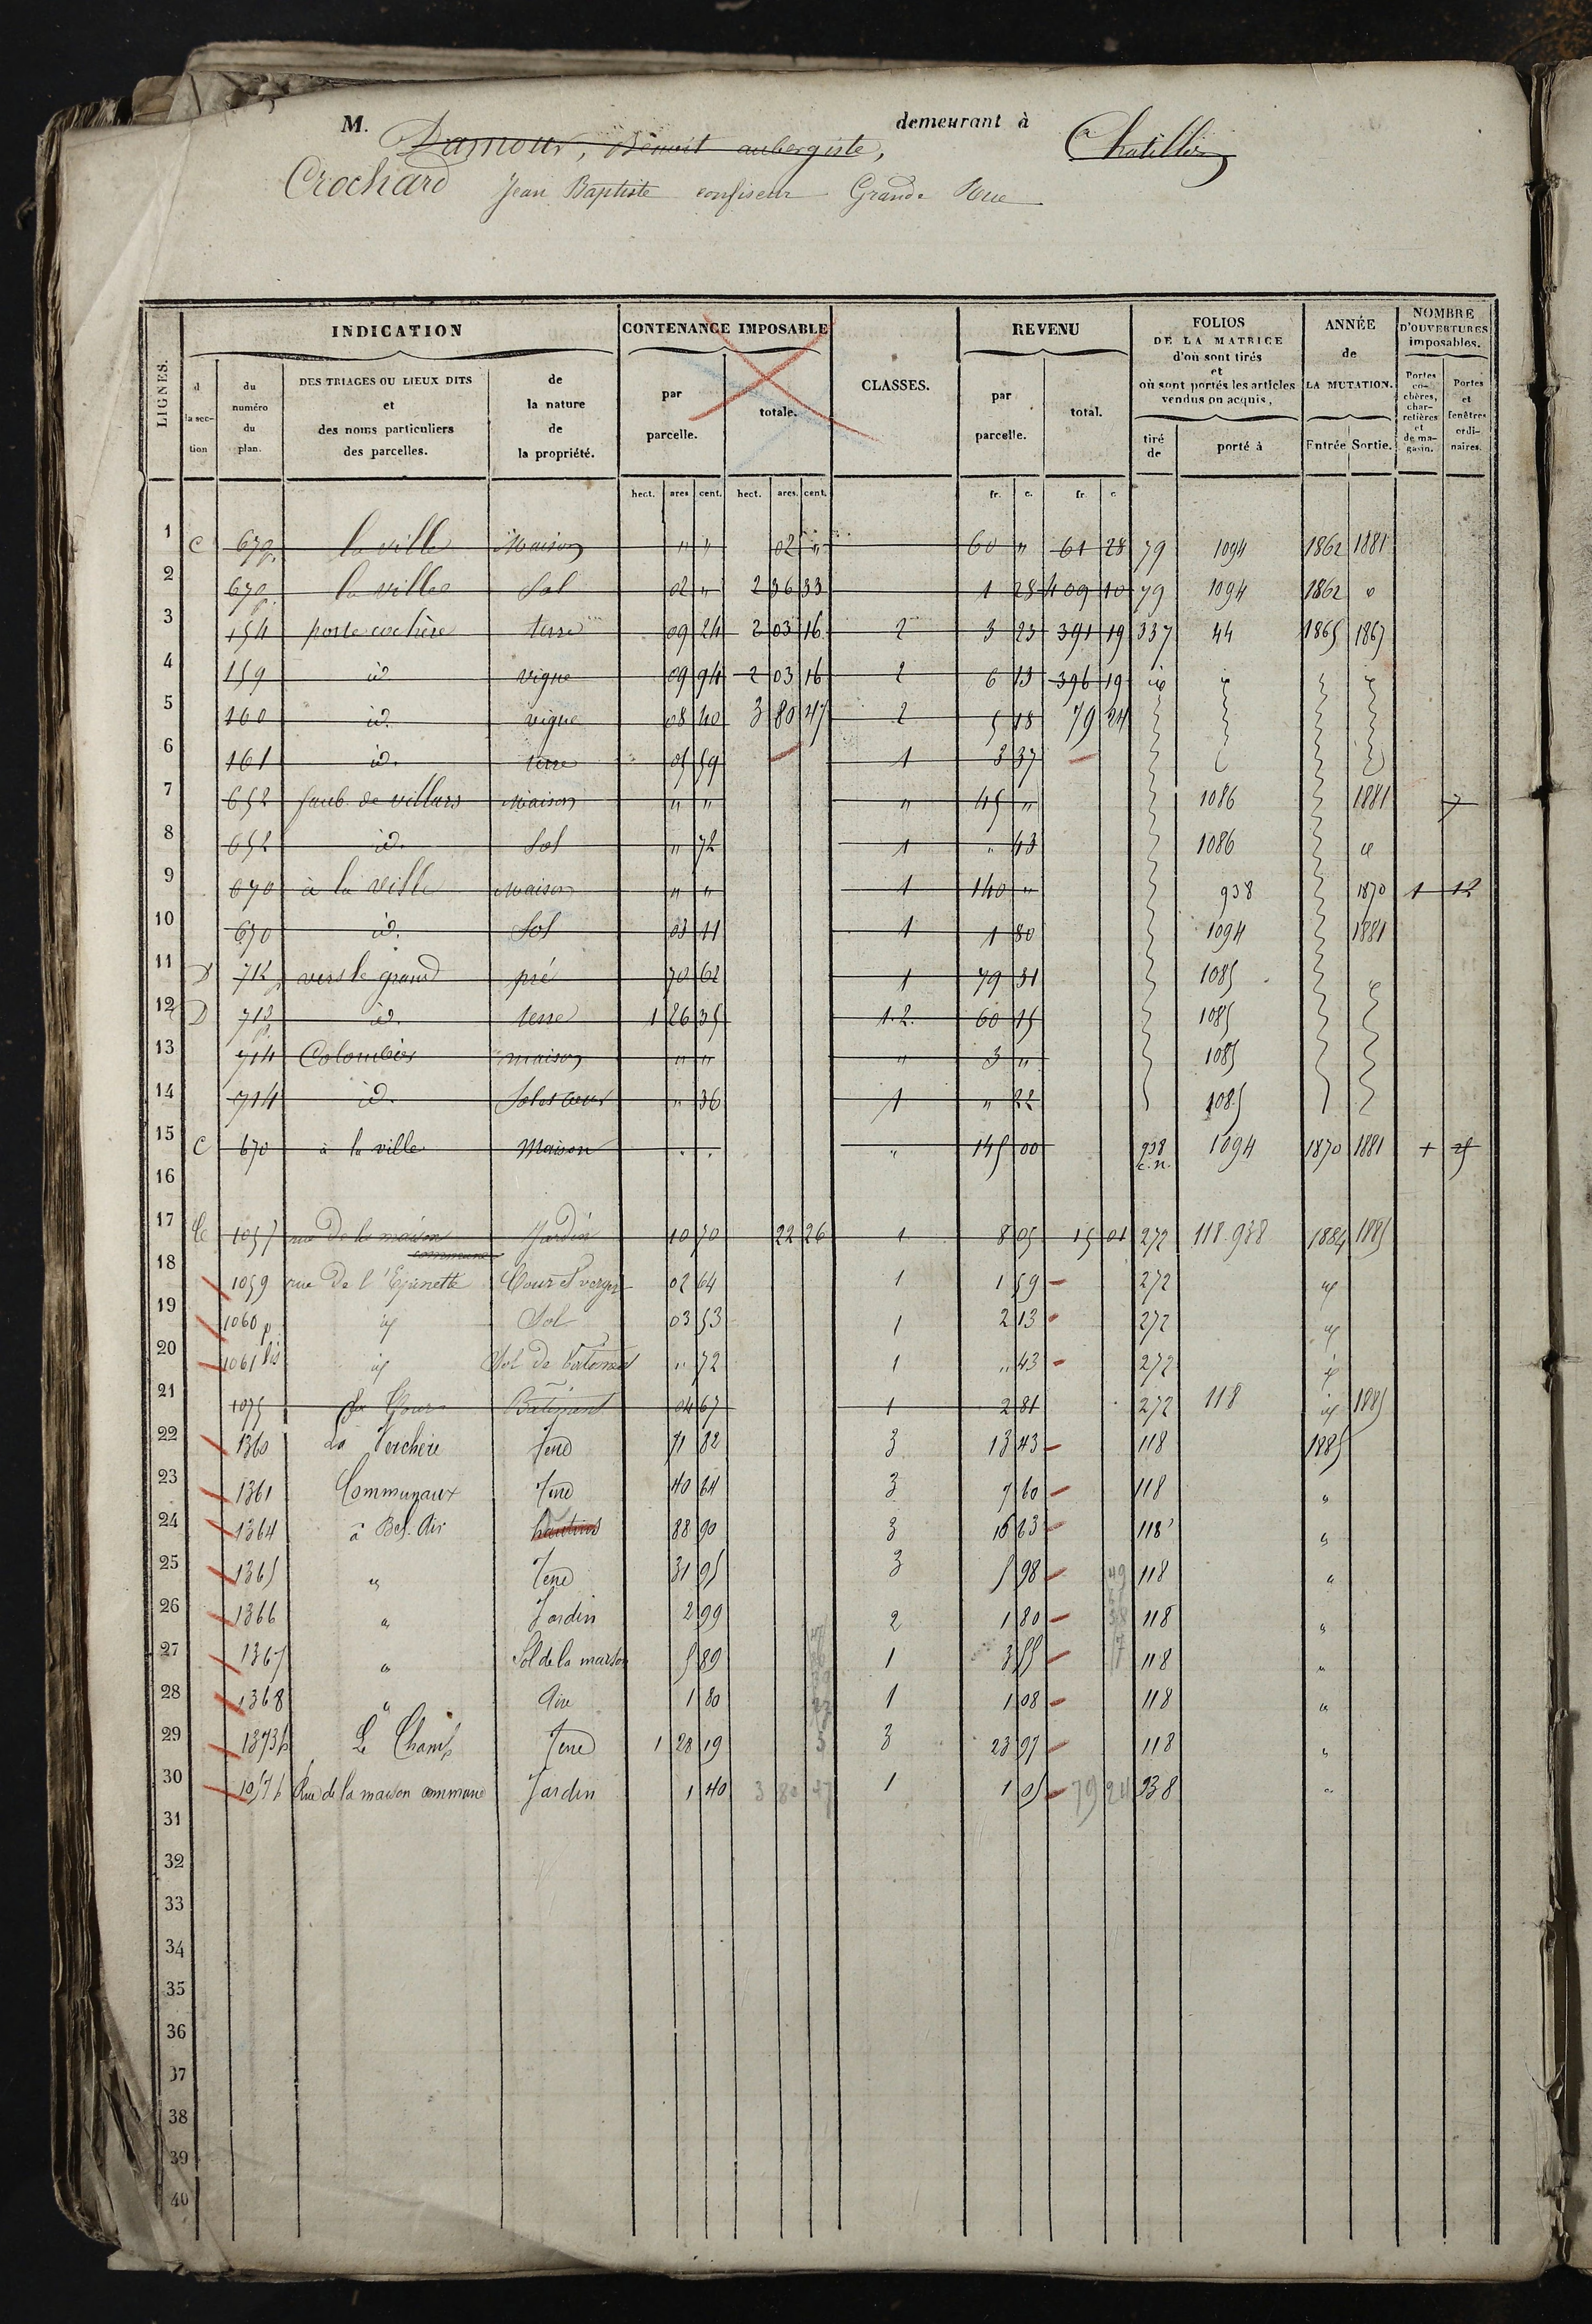 M. Damour, Benoit aubergiste, demeurant à Chatillon
Crochard Jean Baptiste confiseur Grande Rue
LIGNES. INDICATION CONTENANCE IMPOSABLE CLASSES. REVENU FOLIOS DE LA MATRICE d'où sont tirés et où sont portés les articles vendus ou acquis, ANNÉE de LA MUTATION. NOMBRE D'OUVERTURES imposables.
d la section du numéro du plan. DES TRIAGES OU LIEUX DITS et des noms particuliers des parcelles. de la nature de la propriété. par parcelle. totale. par parcelle. total. tiré de porté à Entrée Sortie. Portes cochères, charretières et de magasin. Portes et fenêtres ordinaires.
hect. ares cent. hect. ares. cent. fr. c. fr. c
1 C 670p la ville Maison " " 02 " 60 " 61 28 79 1094 1862 1881
2 670p la ville Sol 02 " 2 36 33 1 28 409 10 79 1094 1862 id
3 154 porte cochère terre 09 24 2 03 16 2 3 23 391 19 337 44 1865 1867
4 159 id vigne 09 94 2 03 16 2 6 13 396 19 id id
5 160 id. vigne 08 40 3 80 47 2 5 18 79 24
6 161 id. terre 05 59 1 3 37
7 652 faub. de villars Maison " " " 45 " 1086 1881 7
8 652 id. Sol " 72 1 " 43 1086 id
9 670 à la ville Maison " " 1 140 " 938 1870 1 12
10 670 id. Sol 03 11 1 1 80 1094 1881
11 D 712p vers le grand pré 70 62 1 79 31 1085
12 D 713p id. terre 1 26 35 1.2. 60 15 1085
13 714 Colombier maison " " " 3 " 1085
14 714 id. Sol et cour " 36 1 " 22 1085
15 C 670 à la ville Maison . . " 145 00 938 c.n. 1094 1870 1881
16
17 C 1057 rue de la maison commune Jardin 10 70 22 26 1 8 05 15 01 272 118.938 1884 1885
18 1059 rue de l'Epinette Cour et verger 02 64 1 1 59 272 id
19 1060 p id Sol 03 53 1 2 13 272 id
20 1061 bis id Sol de batiment " 72 1 " 43 272 id
21 1075 Batiment 04 67 1 2 81 272 118 id 1885
22 1360 La Verchère Terre 71 82 3 13 43 118 1885
23 1361 Communaux Terre 40 64 3 7 60 118 "
24 1364 à Bel-Air hautins 88 90 3 16 63 118 "
25 1365 " Terre 31 95 3 5 98 118 "
26 1366 " Jardin 2 99 2 1 80 118 "
27 1367 " Sol de la maison 5 89 1 3 55 118 "
28 1368 " Aire 1 80 1 1 08 118 "
29 1373p Le Champ Terre 1 28 19 3 23 97 118 "
30 1057p Rue de la maison commune Jardin 1 40 3 80 47 1 1 05 79 24 938 "
31
32
33
34
35
36
37
38
39
40